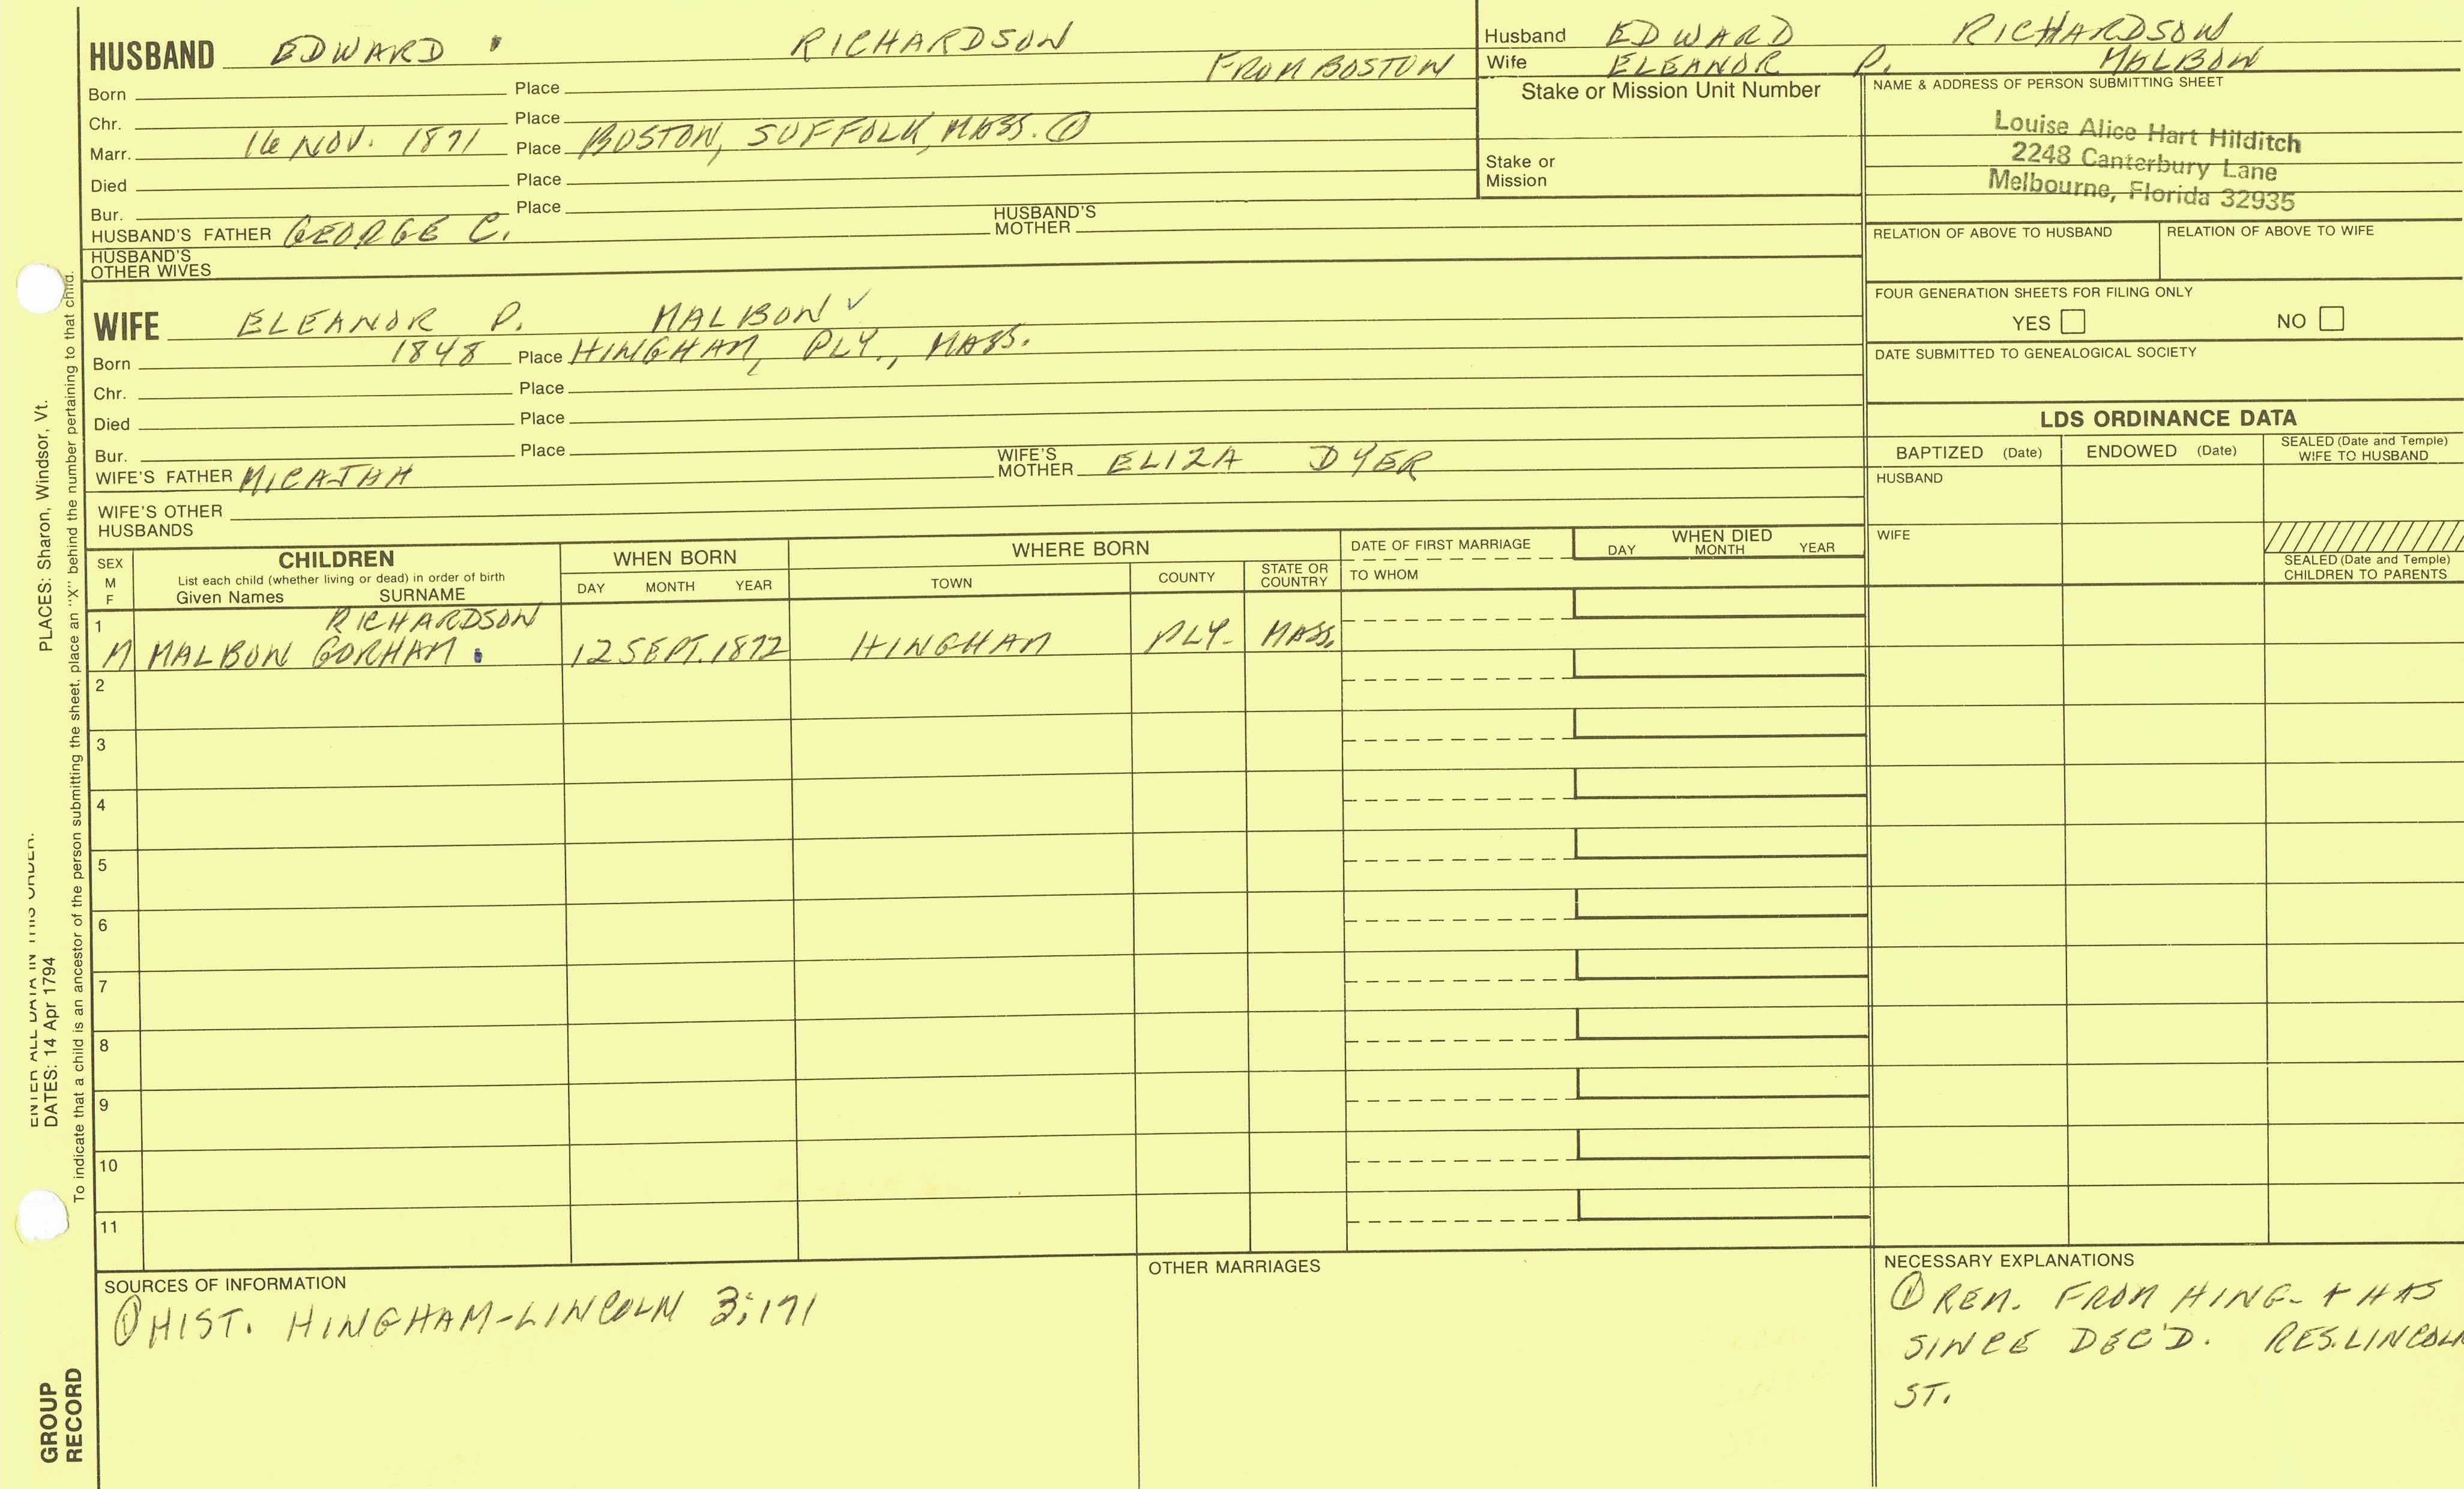 HUSBAND EDWARD RICHARDSON
FROM BOSTON
Born Place
Chr. Place
Marr. 16 NOV. 1871 Place BOSTON, SUFFOLK, MASS. ①
Died Place
Bur. Place
HUSBAND'S FATHER GEORGE C. HUSBAND'S MOTHER
HUSBAND'S OTHER WIVES
Husband EDWARD RICHARDSON
Wife ELEANOR P. MALBON
Stake or Mission Unit Number
Stake or Mission
NAME & ADDRESS OF PERSON SUBMITTING SHEET
Louise Alice Hart Hilditch
2248 Canterbury Lane
Melbourne, Florida 32935
RELATION OF ABOVE TO HUSBAND RELATION OF ABOVE TO WIFE
FOUR GENERATION SHEETS FOR FILING ONLY
YES NO
DATE SUBMITTED TO GENEALOGICAL SOCIETY
WIFE ELEANOR P. MALBON ✓
Born 1848 Place HINGHAM, PLY., MASS.
Chr. Place
Died Place
Bur. Place
WIFE'S FATHER MICAJAH WIFE'S MOTHER ELIZA DYER
WIFE'S OTHER HUSBANDS
LDS ORDINANCE DATA
BAPTIZED (Date) ENDOWED (Date) SEALED (Date and Temple) WIFE TO HUSBAND
HUSBAND
WIFE
SEALED (Date and Temple) CHILDREN TO PARENTS
SEX M F
CHILDREN
List each child (whether living or dead) in order of birth
Given Names SURNAME
WHEN BORN
DAY MONTH YEAR
WHERE BORN
TOWN COUNTY STATE OR COUNTRY
DATE OF FIRST MARRIAGE
TO WHOM
WHEN DIED
DAY MONTH YEAR
1 RICHARDSON
M MALBON GORHAM 12 SEPT. 1872 HINGHAM PLY. MASS.
2
3
4
5
6
7
8
9
10
11
SOURCES OF INFORMATION
① HIST. HINGHAM-LINCOLN 3:171
OTHER MARRIAGES
NECESSARY EXPLANATIONS
① REM. FROM HING. + HAS
SINCE DEC'D. RES. LINCOLN
ST.
ENTER ALL DATA IN THIS ORDER.
DATES: 14 Apr 1794 PLACES: Sharon, Windsor, Vt.
To indicate that a child is an ancestor of the person submitting the sheet, place an "X" behind the number pertaining to that child.
GROUP
RECORD